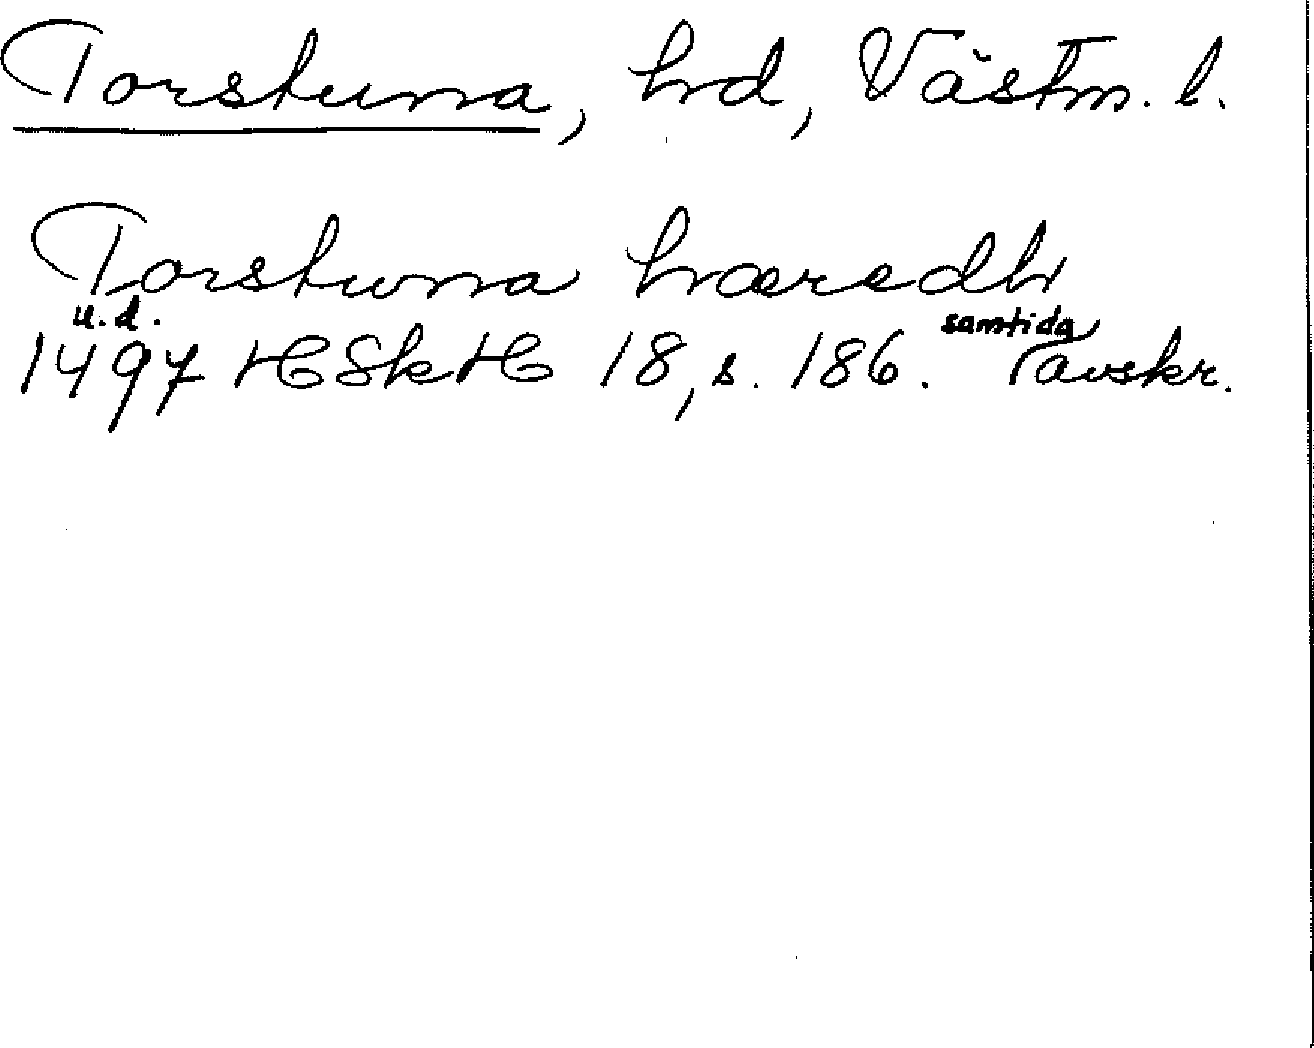 Torstuna, hd, Västm. l.
Torstuna hæredh
u.d.
1497 HSkH 18, s. 186. samtida avskr.